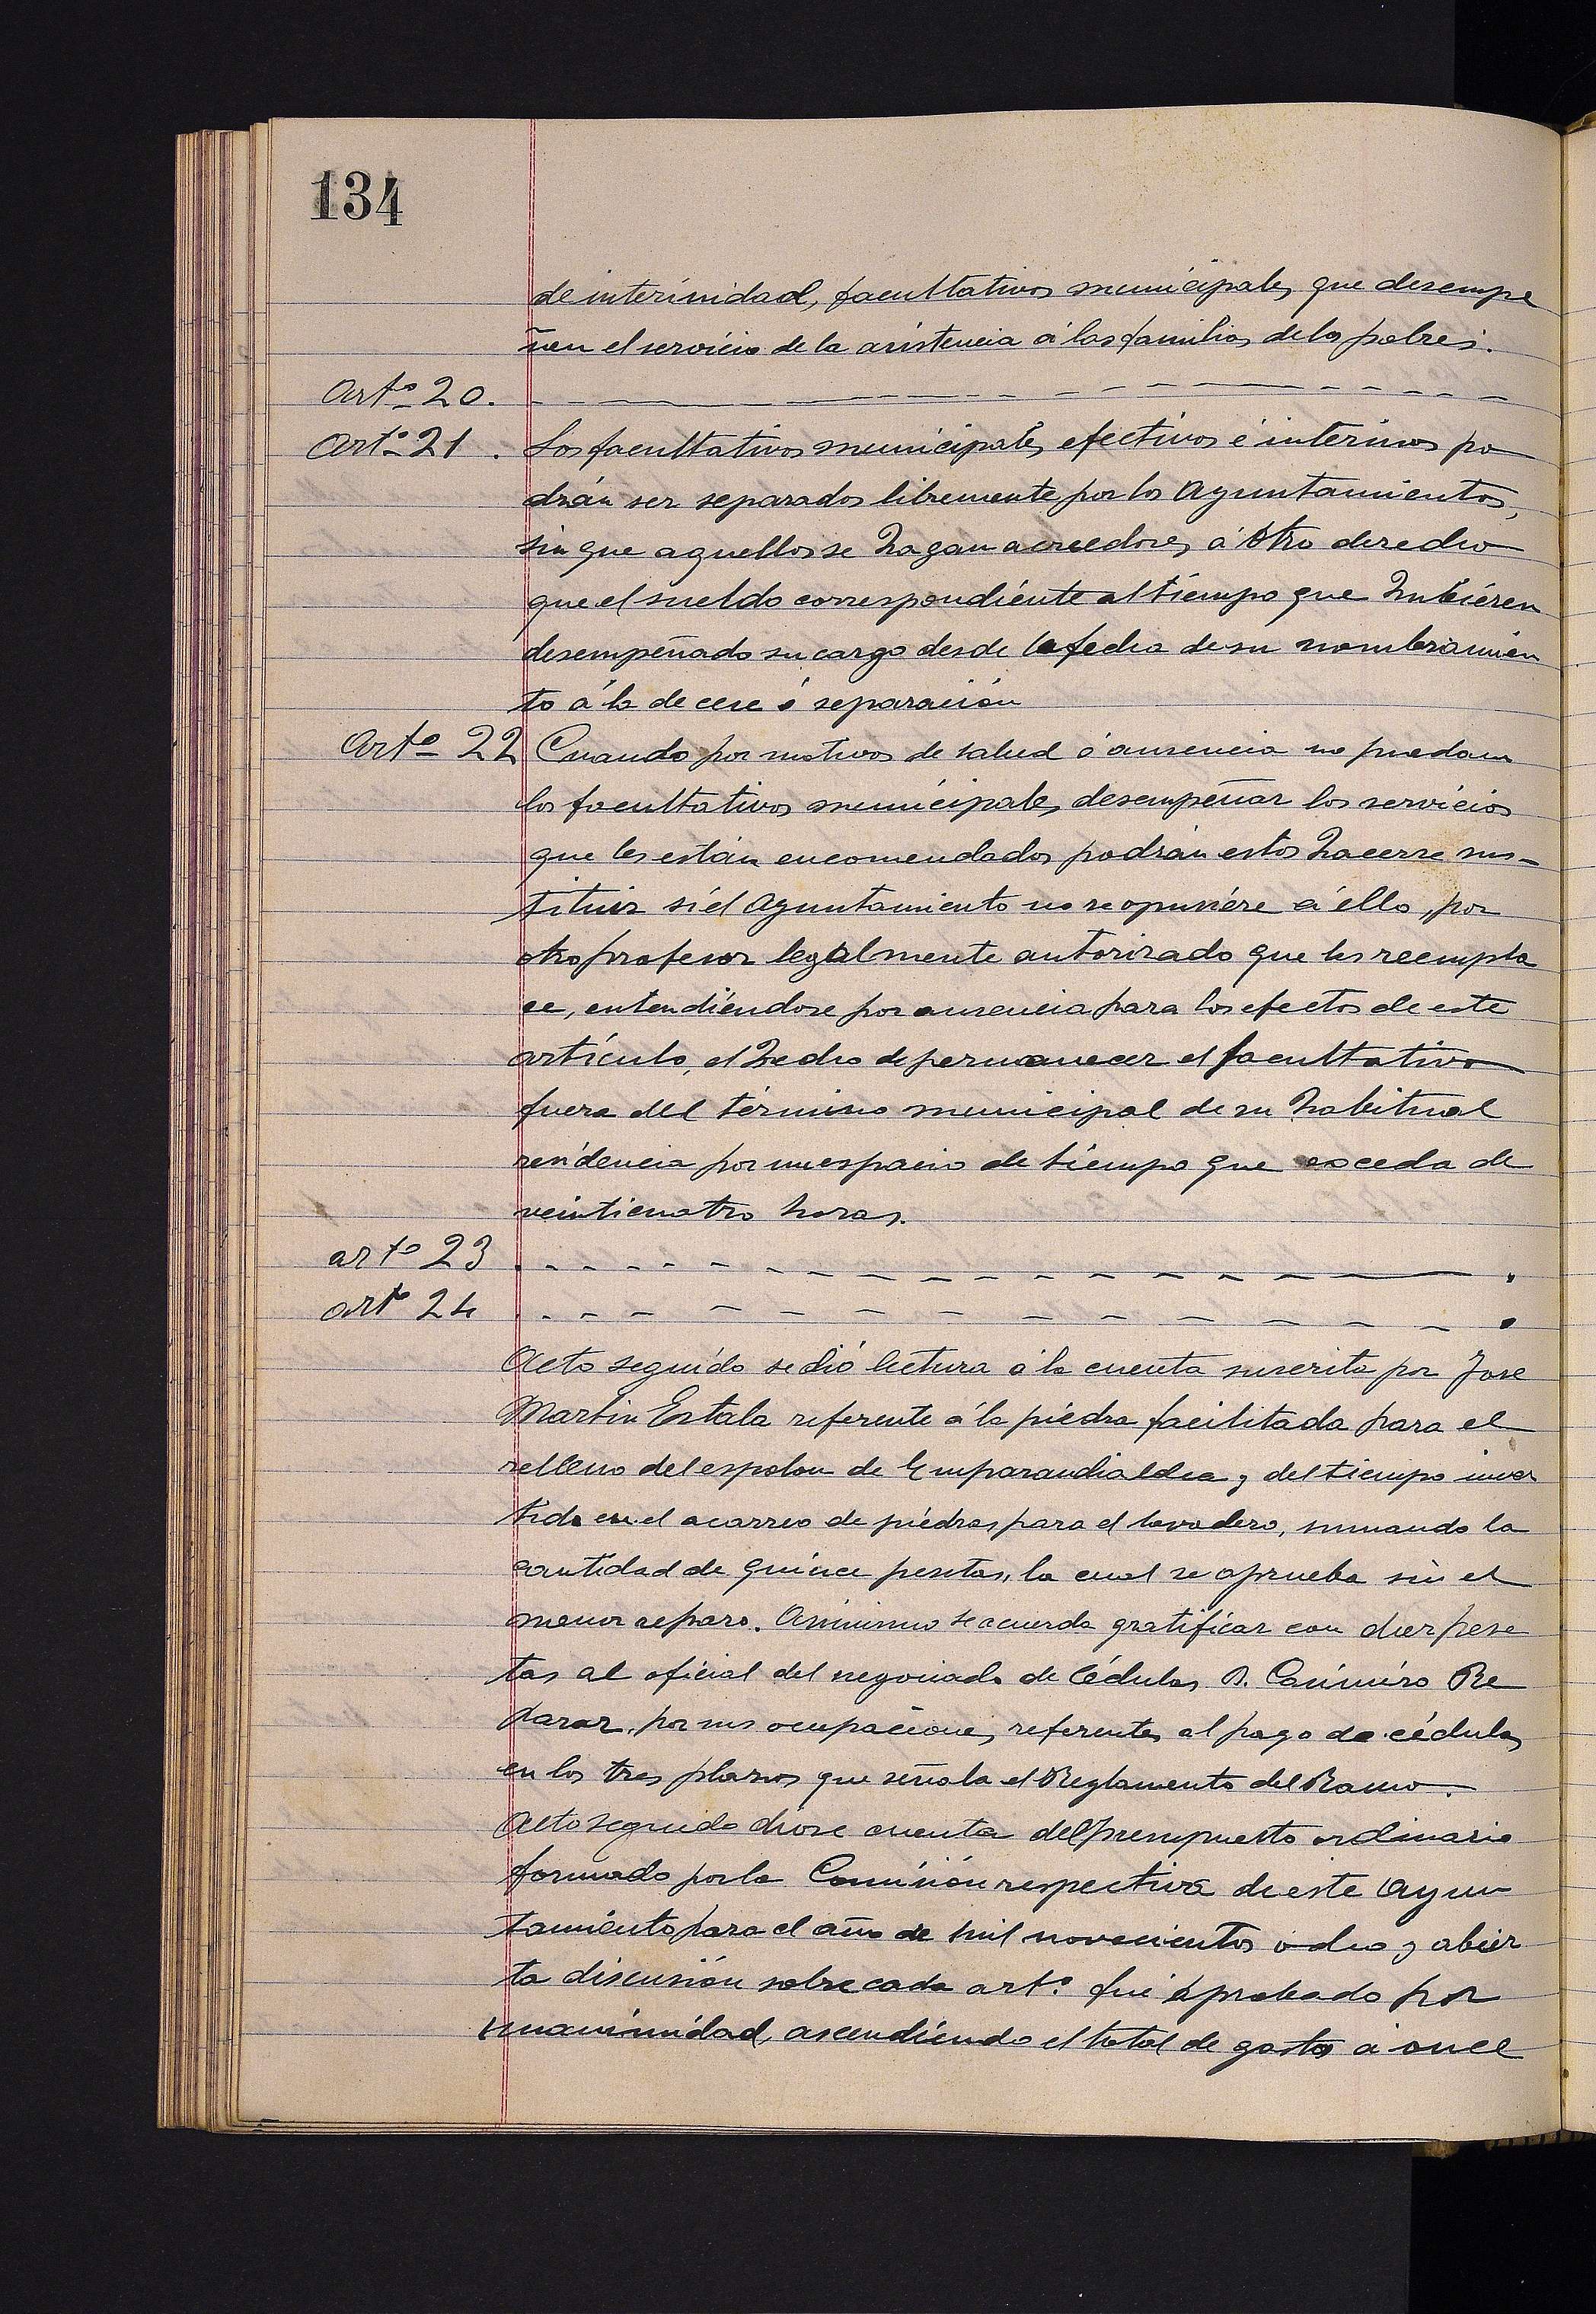 134
de interinidad, facultativos municipales, que desempe
ñen el servicio de la asistencia á las familias de los pobres.
Artº 20.
Artº 21. Los facultativos municipales, efectivos é interinos po
drán ser separados libremente por los Ayuntamientos,
sin que aquellos se hagan acreedores á otro derecho
que el sueldo correspondiente al tiempo que hubieren
desempeñado su cargo desde la fecha de su nombramien
to á la de cese ó separación
Artº 22 Cuando por motivos de salud ó ausencia no puedan
los facultativos municipales desempeñar los servicios
que les están encomendados podrán estos hacerse sus-
tituir si el Ayuntamiento no se opusiére á ello, por
otro profesor legalmente autorizado que les reempla
ce, entendiéndose por ausencia para los efectos de este
artículo, el hecho de permanecer el facultativo
fuera del término municipal de su habitual
residencia por un espacio de tiempo que exceda de
veinticuatro horas.
artº 23
artº 24
Acto seguido se dió lectura á la cuenta suscrita por José
Martin Estala referente á la piedra facilitada para el
relleno del espolon de Emparandialdea y del tiempo inver
tido en el acarreo de piedras para el lavadero, sumando la
cantidad de quince pesetas, la cual se aprueba sin el
menor reparo. Asimismo se acuerda gratificar con diez pese
tas al oficial del negociado de Cédulas D. Casimiro Re
darar, por sus ocupaciones, referentes al pago de cédulas
en los tres plazos que señala el Reglamento del Ramo.
Acto seguido diose cuenta del presupuesto ordinario
formado por la Comisión respectiva de este Ayun
tamiento para el año de mil novecientos ocho y abier
ta discusión sobre cada artº fué aprobado por
unanimidad, ascendiendo el total de gastos á once